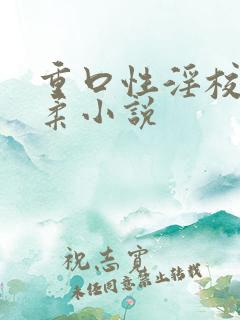 重口性淫校
柔小说
祝志宽
未经同意禁止转载